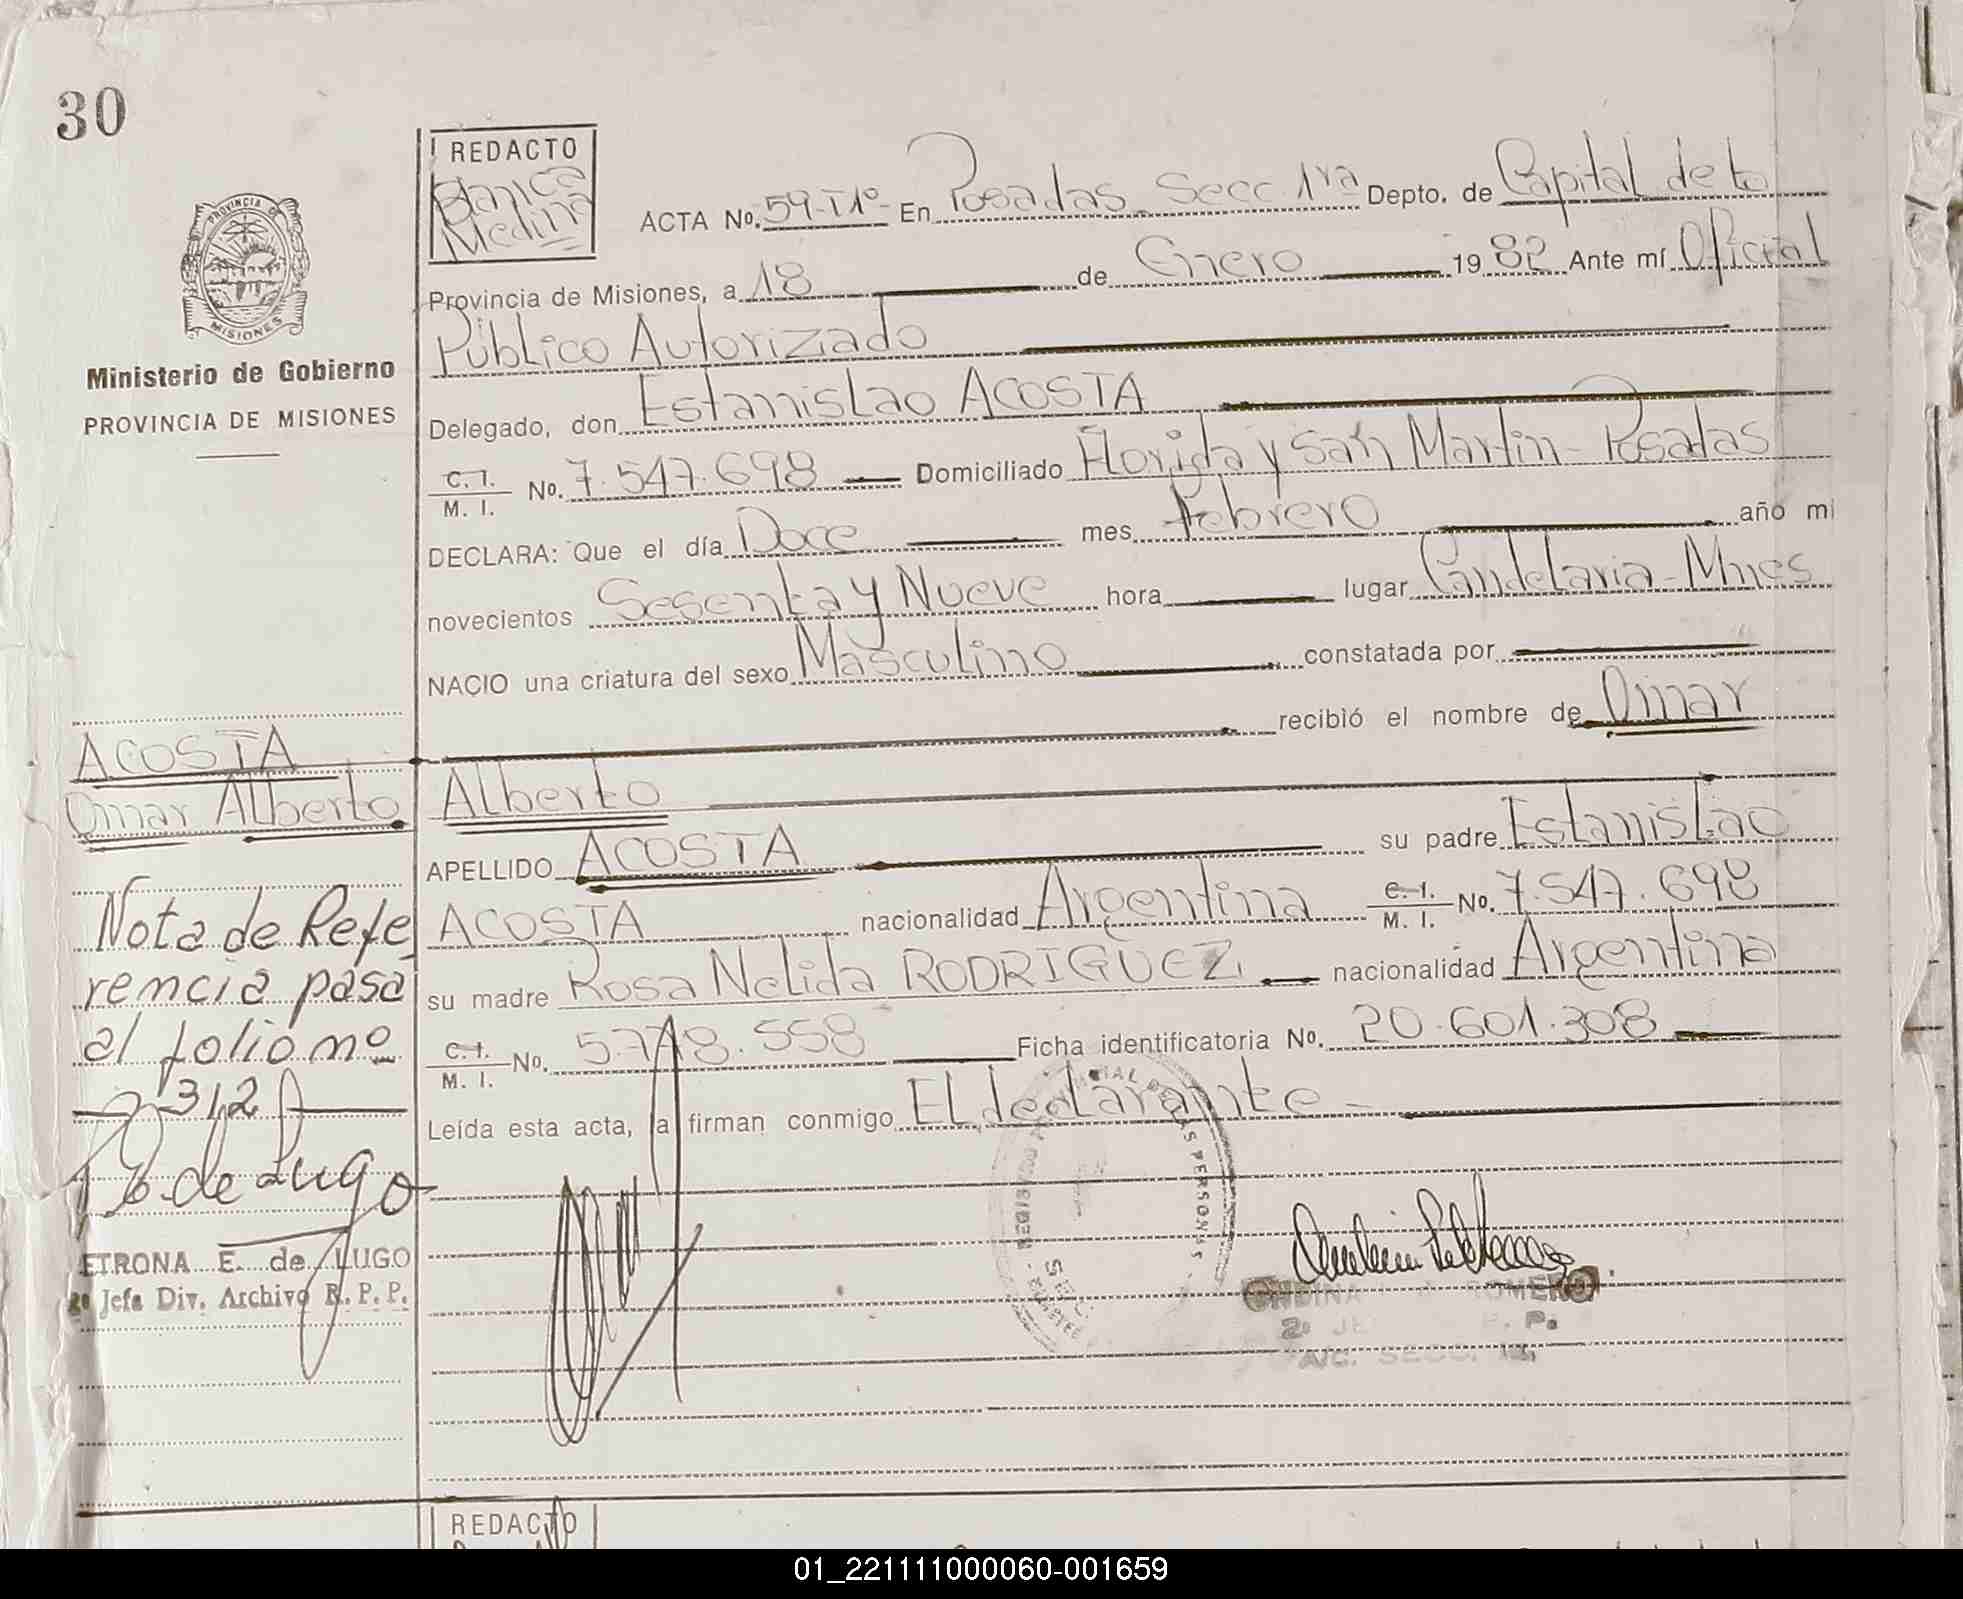 30
REDACTO
Blanca
Medina
ACTA No. 59-T1º- En Posadas Secc 1ra Depto. de Capital de la
Provincia de Misiones, a 18 de Enero 1982 Ante mí Oficial
Público Autorizado
Delegado, don Estanislao ACOSTA
C. I. / M. I. No. 7.547.698 Domiciliado Florida y San Martin - Posadas
DECLARA: Que el día Doce mes Febrero año mi
novecientos Sesenta y Nueve hora lugar Candelaria - Mnes
NACIO una criatura del sexo Masculino constatada por
recibió el nombre de Omar
Alberto
APELLIDO ACOSTA su padre Estanislao
ACOSTA nacionalidad Argentina C. I. / M. I. No. 7.547.698
su madre Rosa Nelida RODRIGUEZ nacionalidad Argentina
C. I. / M. I. No. 5.778.558 Ficha identificatoria No. 20.601.308
Leída esta acta, la firman conmigo El declarante -
PROVINCIA DE
MISIONES
Ministerio de Gobierno
PROVINCIA DE MISIONES
ACOSTA
Omar Alberto
Nota de Refe
rencia pasa
al folio nº
312
E. de Lugo
ETRONA E. de LUGO
2º Jefa Div. Archivo R. P. P.
REDACTO
01_221111000060-001659